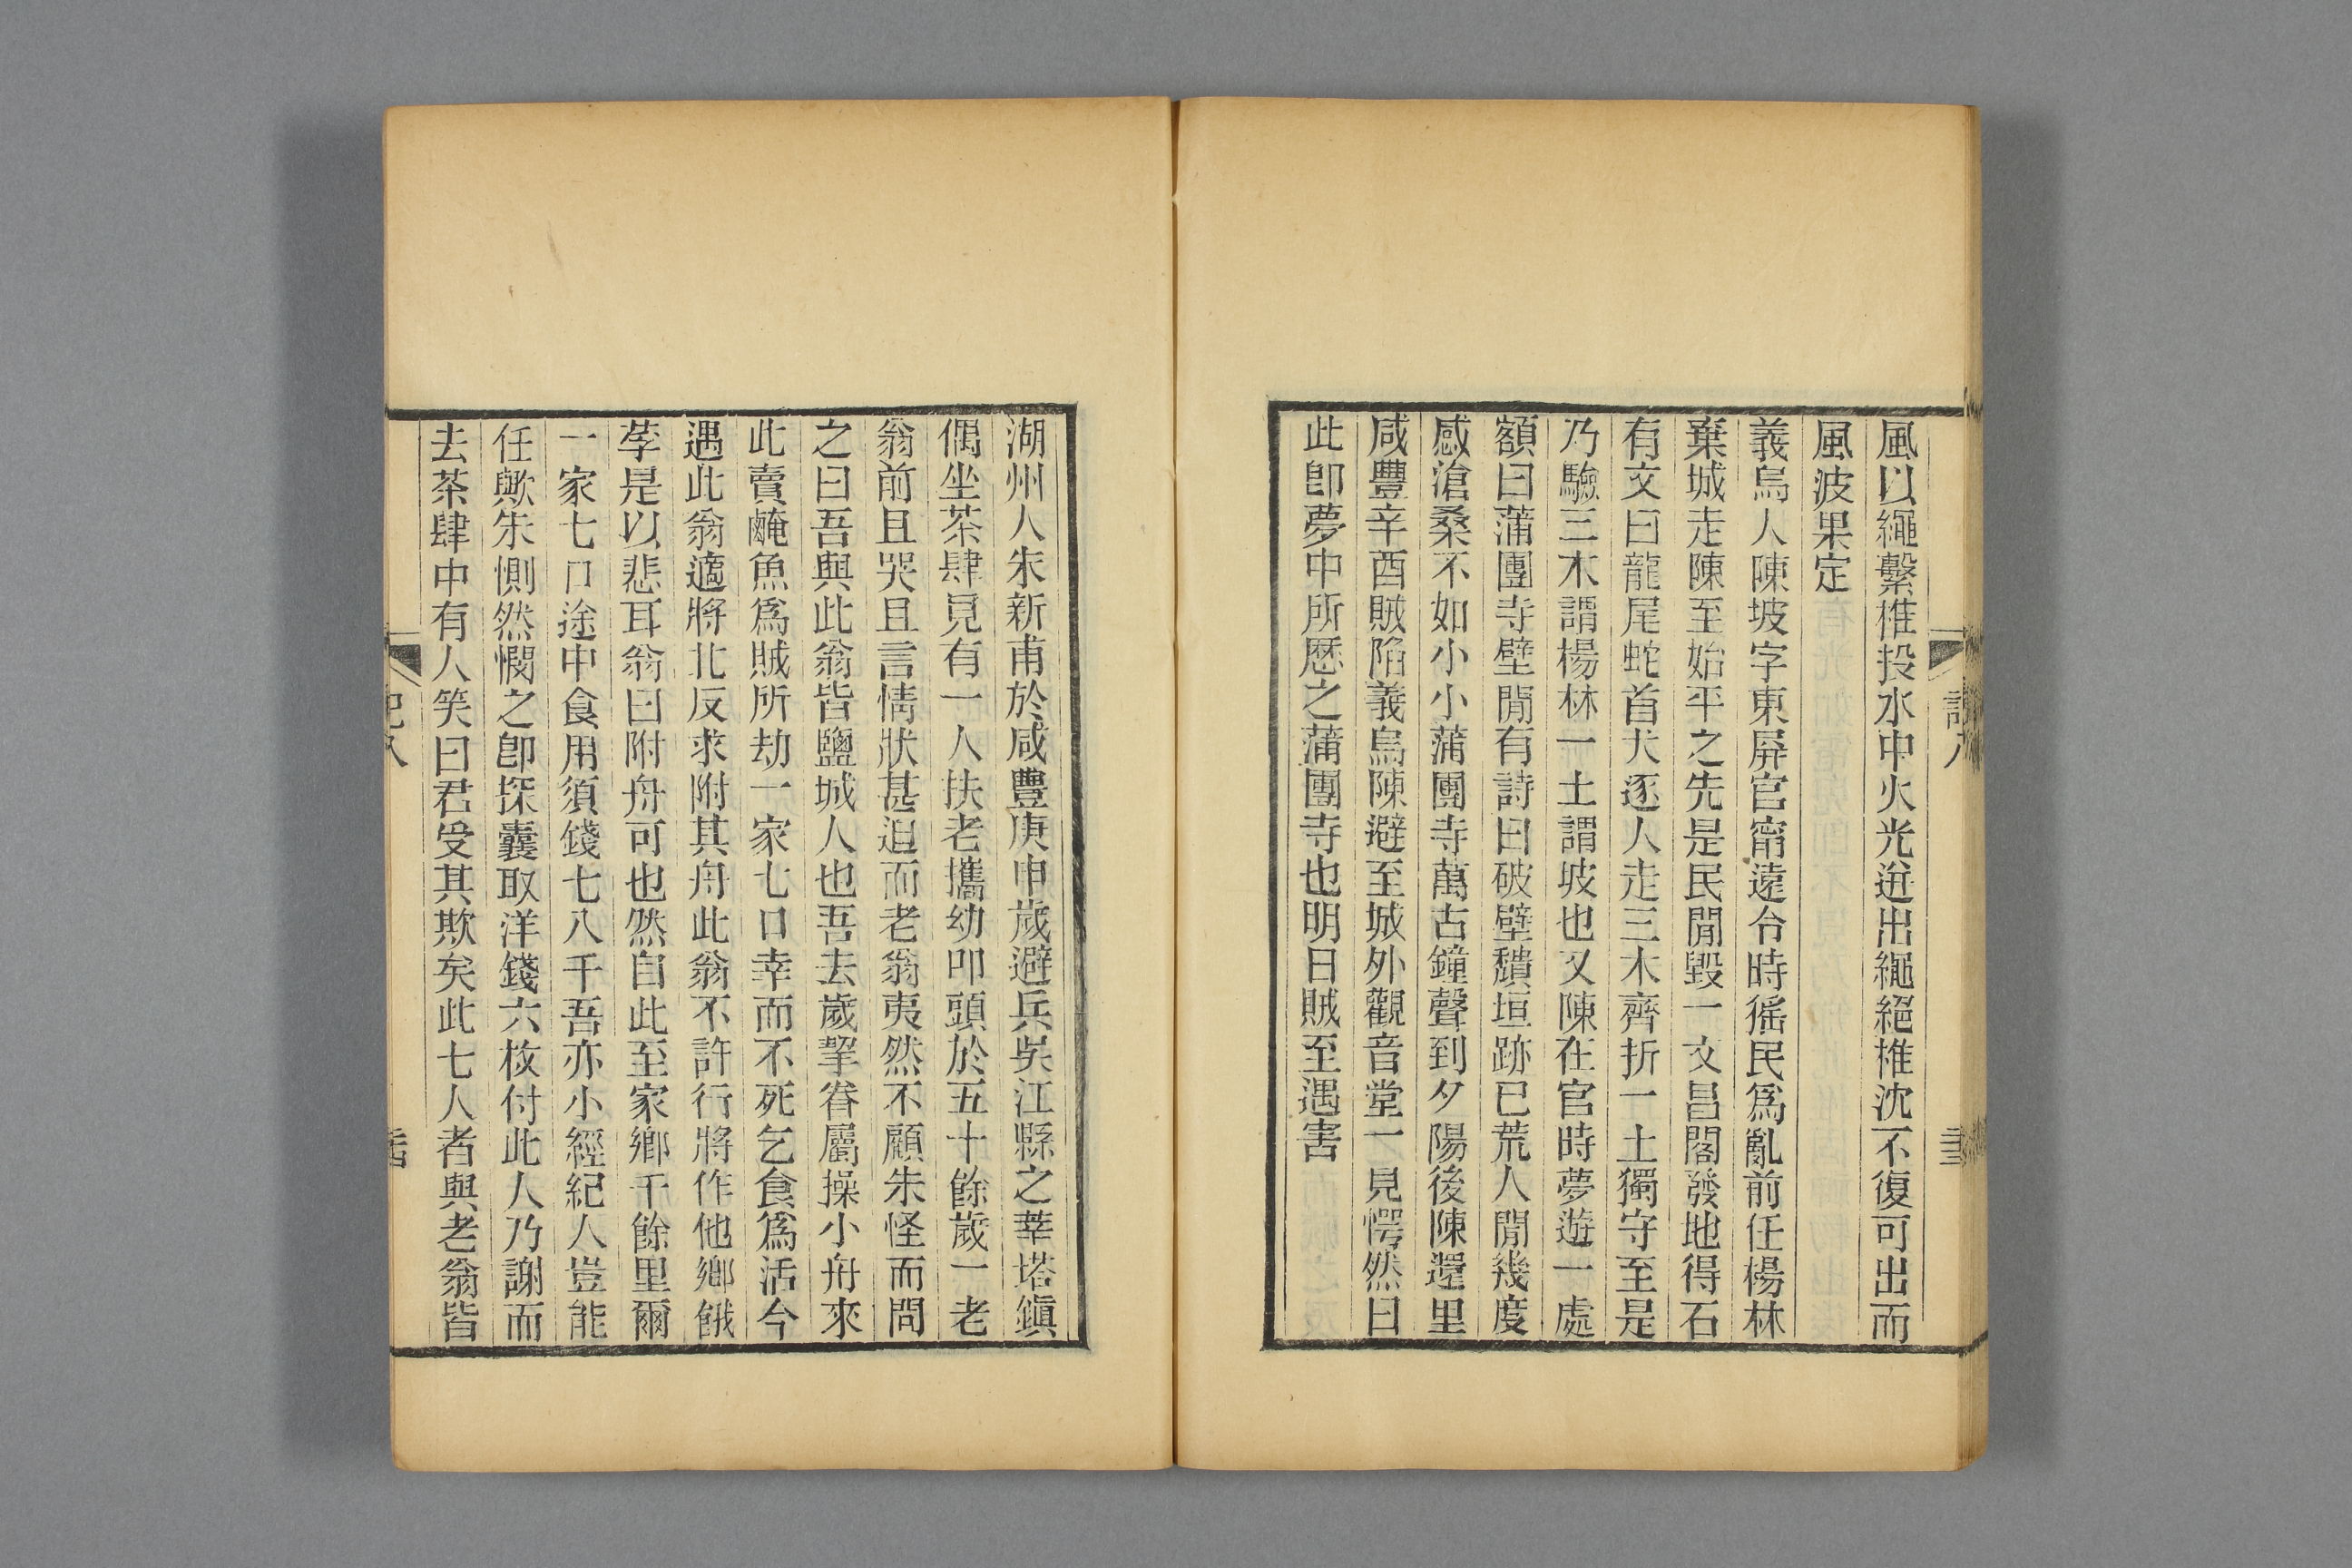 風以繩繫椎投水中火光迸出繩絕椎沈不復可出而
風波果定
義烏人陳坡字東屏官甯遠令時猺民爲亂前任楊林
棄城走陳至始平之先是民閒毀一文昌閣發地得石
有文曰龍尾蛇首犬逐人走三木齊折一土獨守至是
乃驗三木謂楊林一土謂坡也又陳在官時夢遊一處
額曰蒲團寺壁閒有詩曰破壁穨垣跡已荒人閒幾度
感滄桑不如小小蒲團寺萬古鐘聲到夕陽後陳還里
咸豐辛酉賊陷義烏陳避至城外觀音堂一見愕然曰
此卽夢中所歷之蒲團寺也明日賊至遇害
湖州人朱新甫於咸豐庚申歲避兵吳江縣之莘塔鎭
偶坐茶肆見有一人扶老攜幼叩頭於五十餘歲一老
翁前且哭且言情狀甚迫而老翁夷然不顧朱怪而問
之曰吾與此翁皆鹽城人也吾去歲挈眷屬操小舟來
此賣醃魚爲賊所劫一家七口幸而不死乞食爲活今
遇此翁適將北反求附其舟此翁不許行將作他鄉餓
莩是以悲耳翁曰附舟可也然自此至家鄉千餘里爾
一家七口途中食用須錢七八千吾亦小經紀人豈能
任歟朱惻然憫之卽探囊取洋錢六枚付此人乃謝而
去茶肆中有人笑曰君受其欺矣此七人者與老翁皆